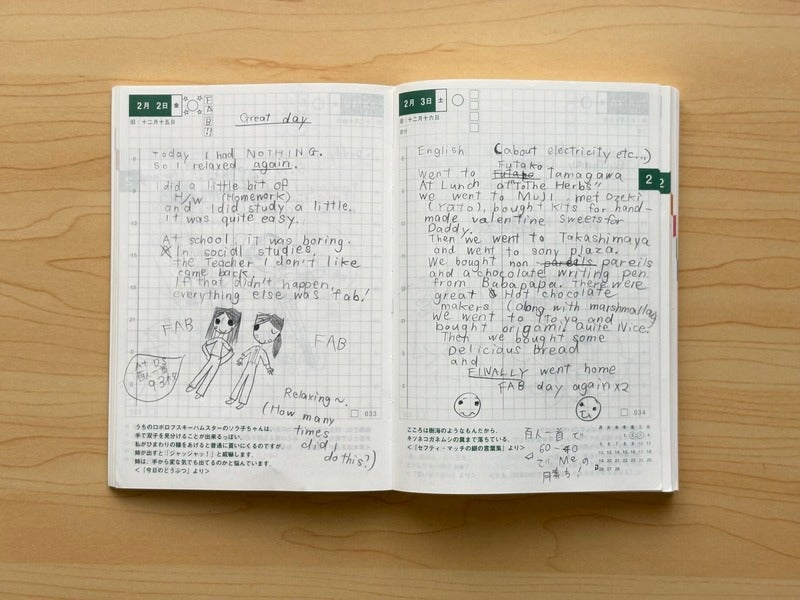 2月 2日 金
旧:十二月十五日
FAB!!
Great day
Today I had NOTHING.
So I relaxed again.
I did a little bit of
H/W (Homework)
and I did study a little.
It was quite easy.
At school, it was boring.
In social studies,
the Teacher I don't like
came back.
If that didn't happen,
everything else was fab!
FAB
FAB
Relaxing~.
(How many
times
did I
do this?)
033
うちのロボロフスキーハムスターのソラチちゃんは、
手で双手を見分けることが出来るっぽい。
私がひまわりの種をあげると普通に貰いにくるのですが、
姉が出すと「ジャッジャッ!」と威嚇します。
姉は、手から変な気でも出てるのかと悩んでいます。
<『今日のどうぶつ』より>
2月 3日 土
旧:十二月十六日
English (about electricity etc...)
Went to Futako Tamagawa
At Lunch at "To The Herbs"
we went to Muji, met Ozeki
(Yuto), bought kits for hand-
made valentine sweets for
Daddy.
Then we went to Takashimaya
and went to sony plaza.
We bought non pareils pareils
and a chocolate writing pen
from Babapapa. There were
great Hot chocolate
makers (along with marshmallow)
We went to Ito-ya and
bought origami. Quite Nice.
Then we bought some
delicious bread
and
FINALLY went home
FAB day again x2
034
2
2
こころは樹海のようなもんだから、
キツネコガネムシの糞まで落ちている。
<『セプティ・マッチの銀の言葉集』より>
百人一首で
60-40
で Meの
月券ち!